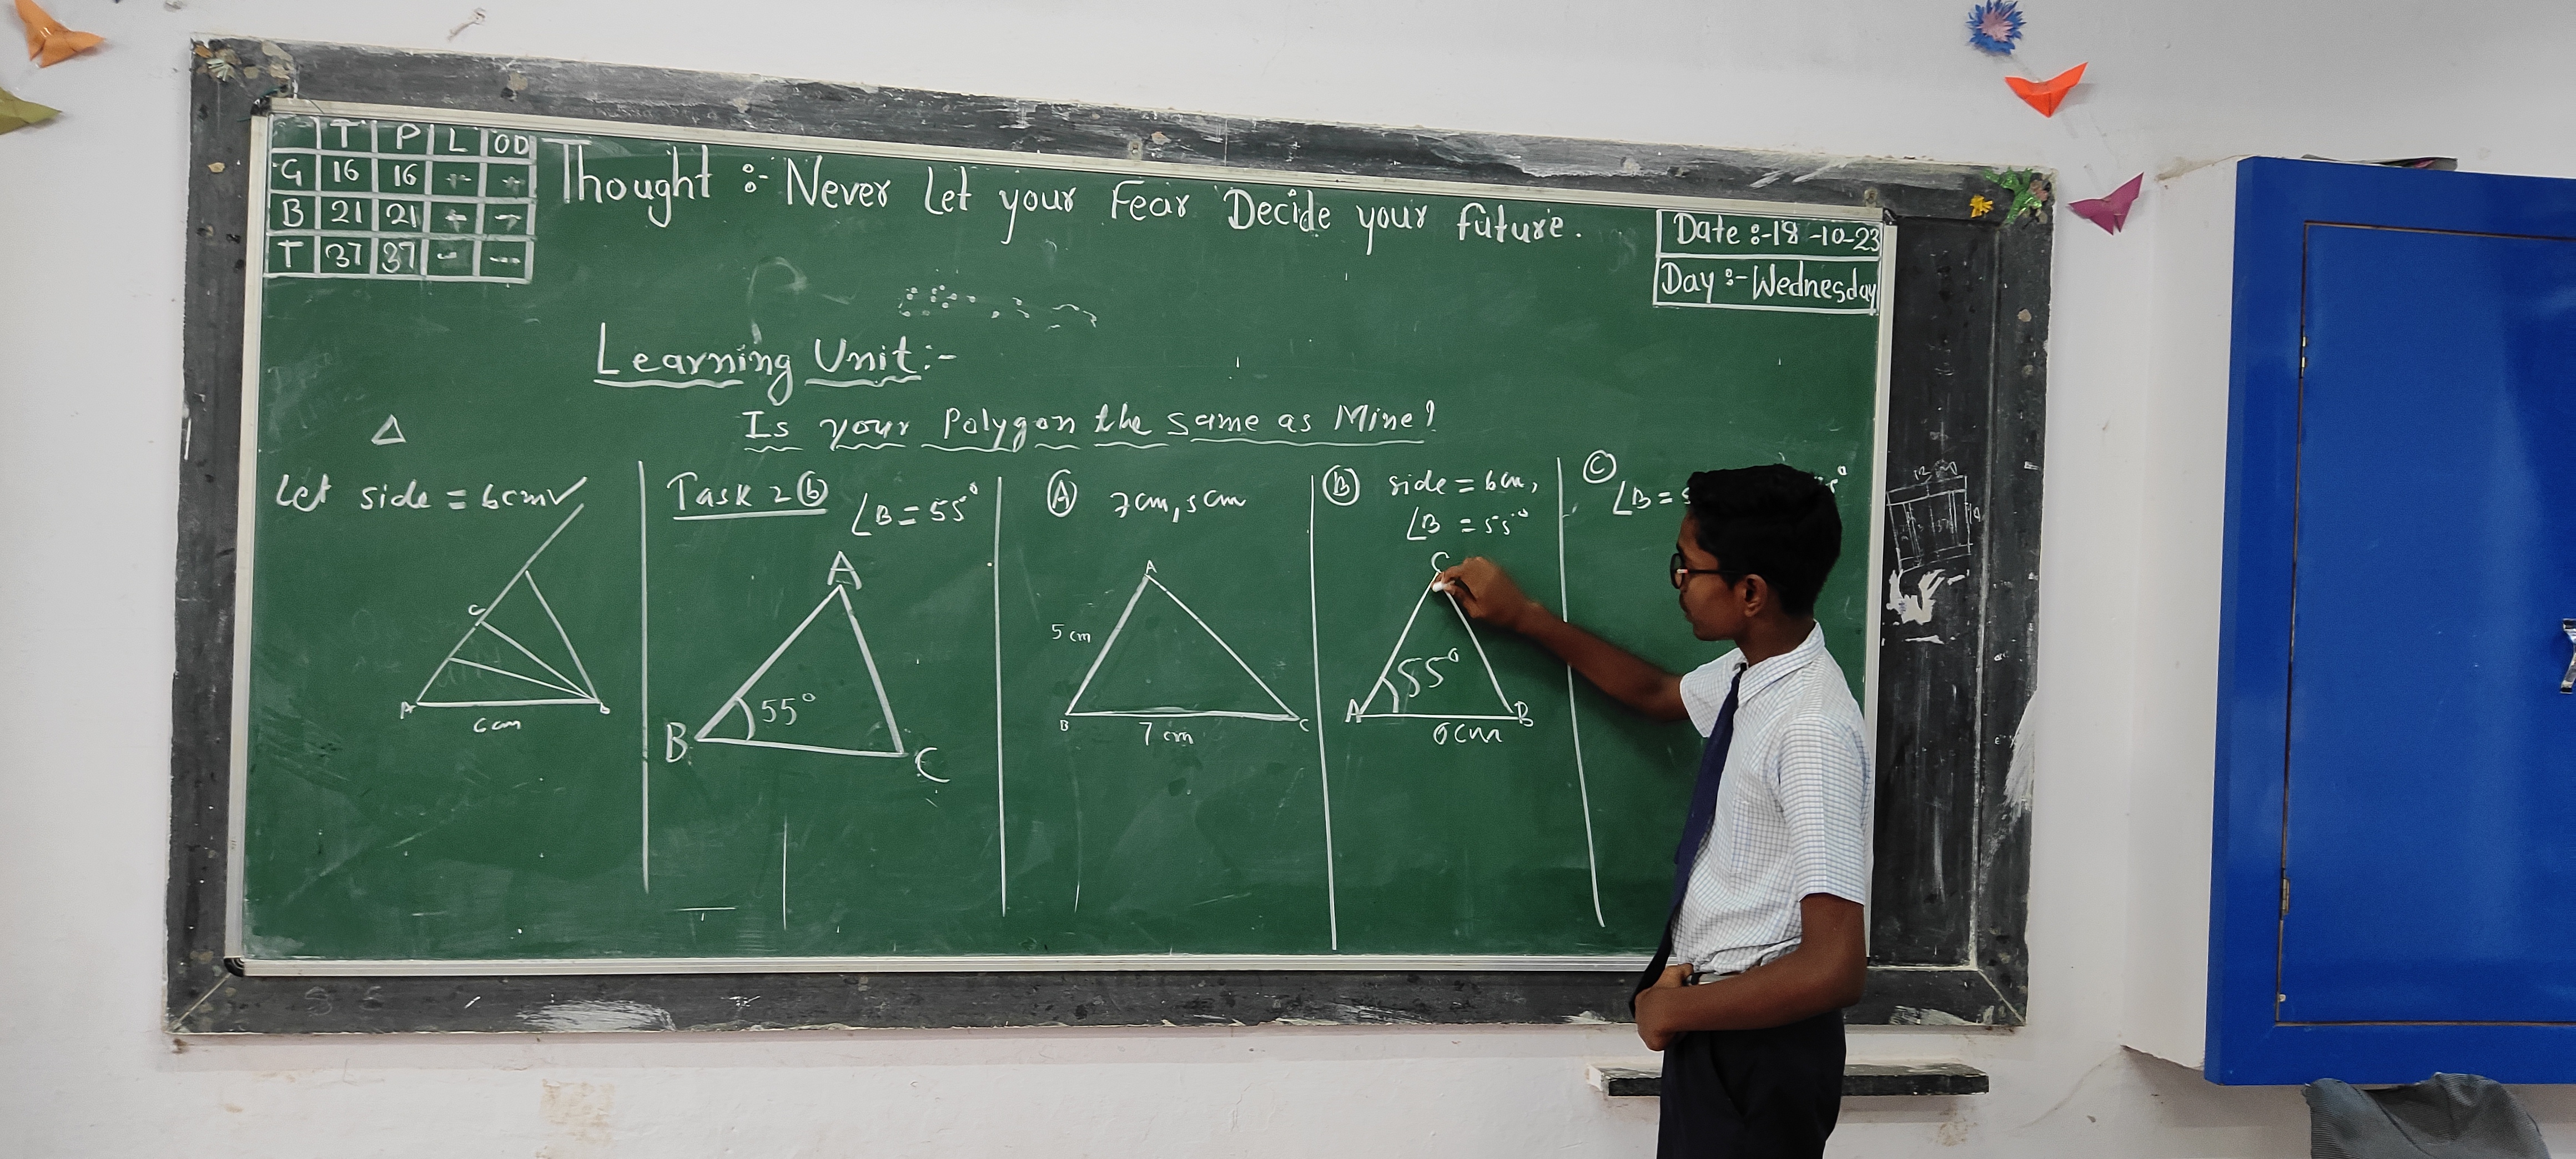 T P L OD
G 16 16 - -
B 21 21 - -
T 37 37 - --
Thought :- Never Let your Fear Decide your future.
Date :- 18-10-23
Day :- Wednesday
Learning Unit:-
Is your Polygon the same as Mine?
△
Let side = 6cm✓
C
A
b
6cm
Task 2 ⓑ
∠B = 55°
A
55°
B
C
Ⓐ 7cm, 5cm
A
5 cm
B
C
7 cm
Ⓑ side = 6cm,
∠B = 55°
C
55°
A
B
6cm
Ⓒ
∠B =